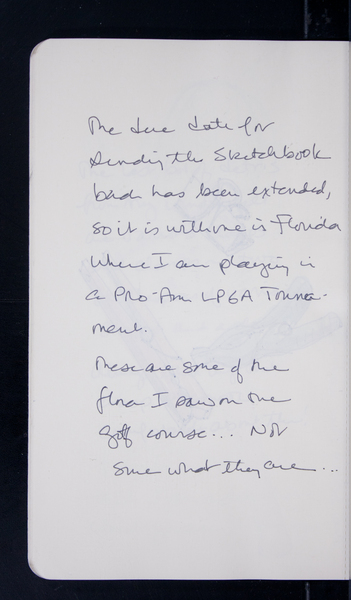 The due date for
sending the Sketchbook
back has been extended,
so it is with me in Florida
where I am playing in
a Pro-Am LPGA Tourna-
ment.
These are some of the
flora I saw on the
golf course... Not
sure what they are...